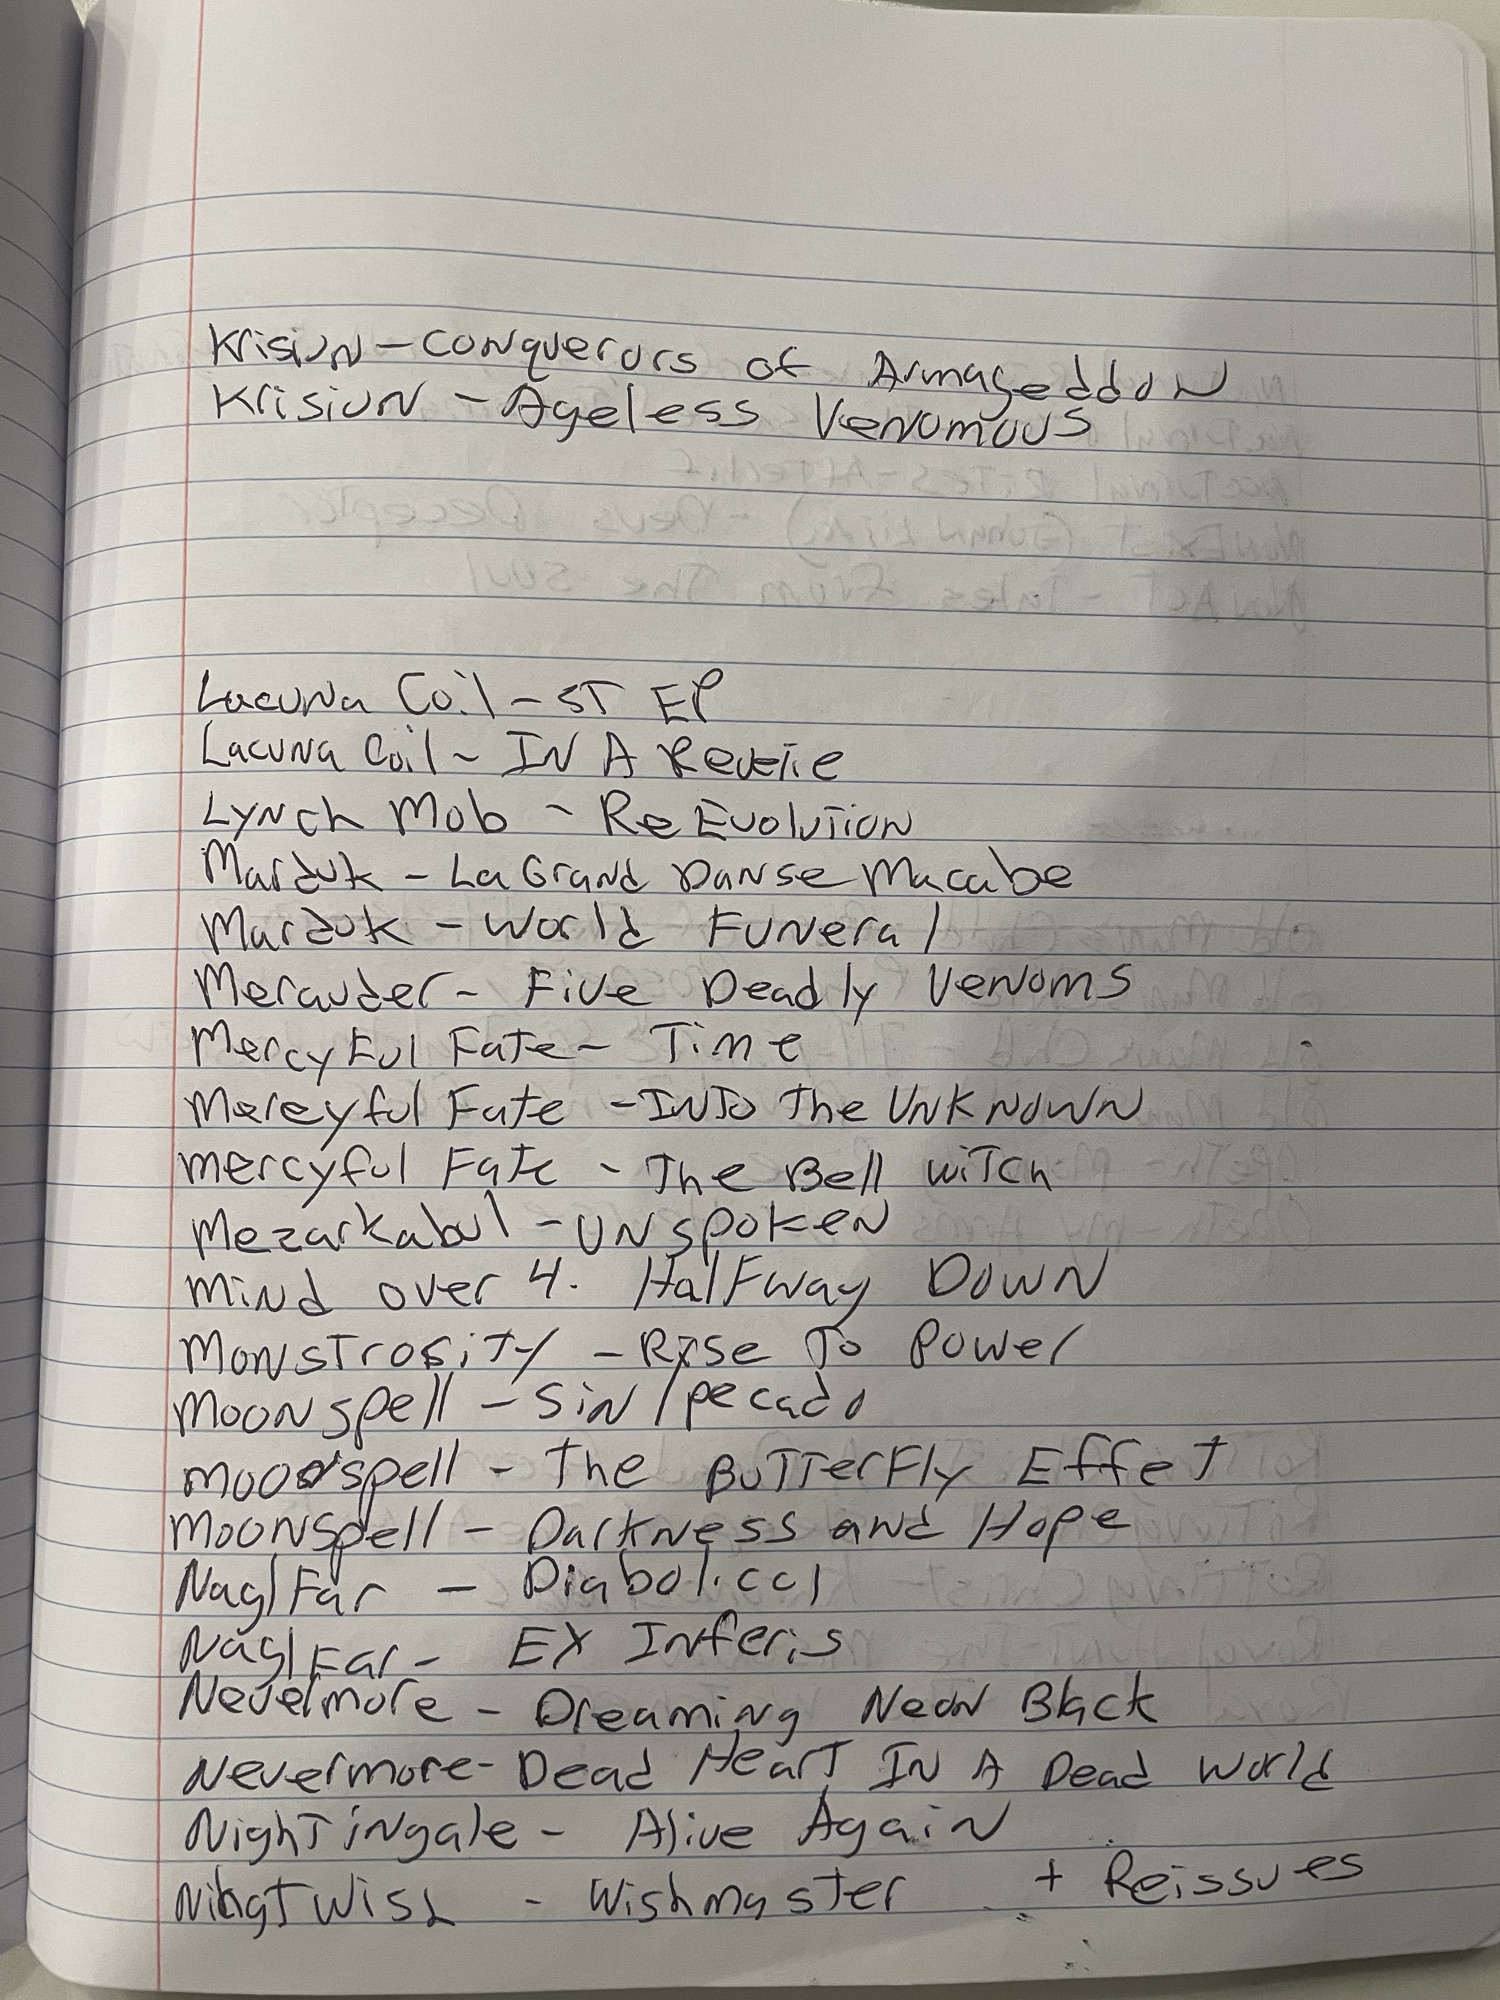 Krisiun - Conquerors of Armageddon
Krisiun - Ageless Venomous
Lacuna Coil - ST EP
Lacuna Coil - IN A Reverie
Lynch Mob - ReEvolution
Marduk - La Grand Danse Macabe
Marduk - World Funeral
Merauder - Five Deadly Venoms
Mercyful Fate - Time
Mercyful Fate - INTO The Unknown
Mercyful Fate - The Bell witch
Mezarkabul - UNSpoken
Mind over 4. Halfway Down
Monstrosity - Rise To Power
Moonspell - Sin/pecado
Moonspell - The Butterfly Effet
Moonspell - Darkness and Hope
Naglfar - Diabolical
Naglfar - EX Inferis
Nevermore - Dreaming Neon Black
Nevermore - Dead Heart IN A Dead World
Nightingale - Alive Again
- Wishmaster + Reissues